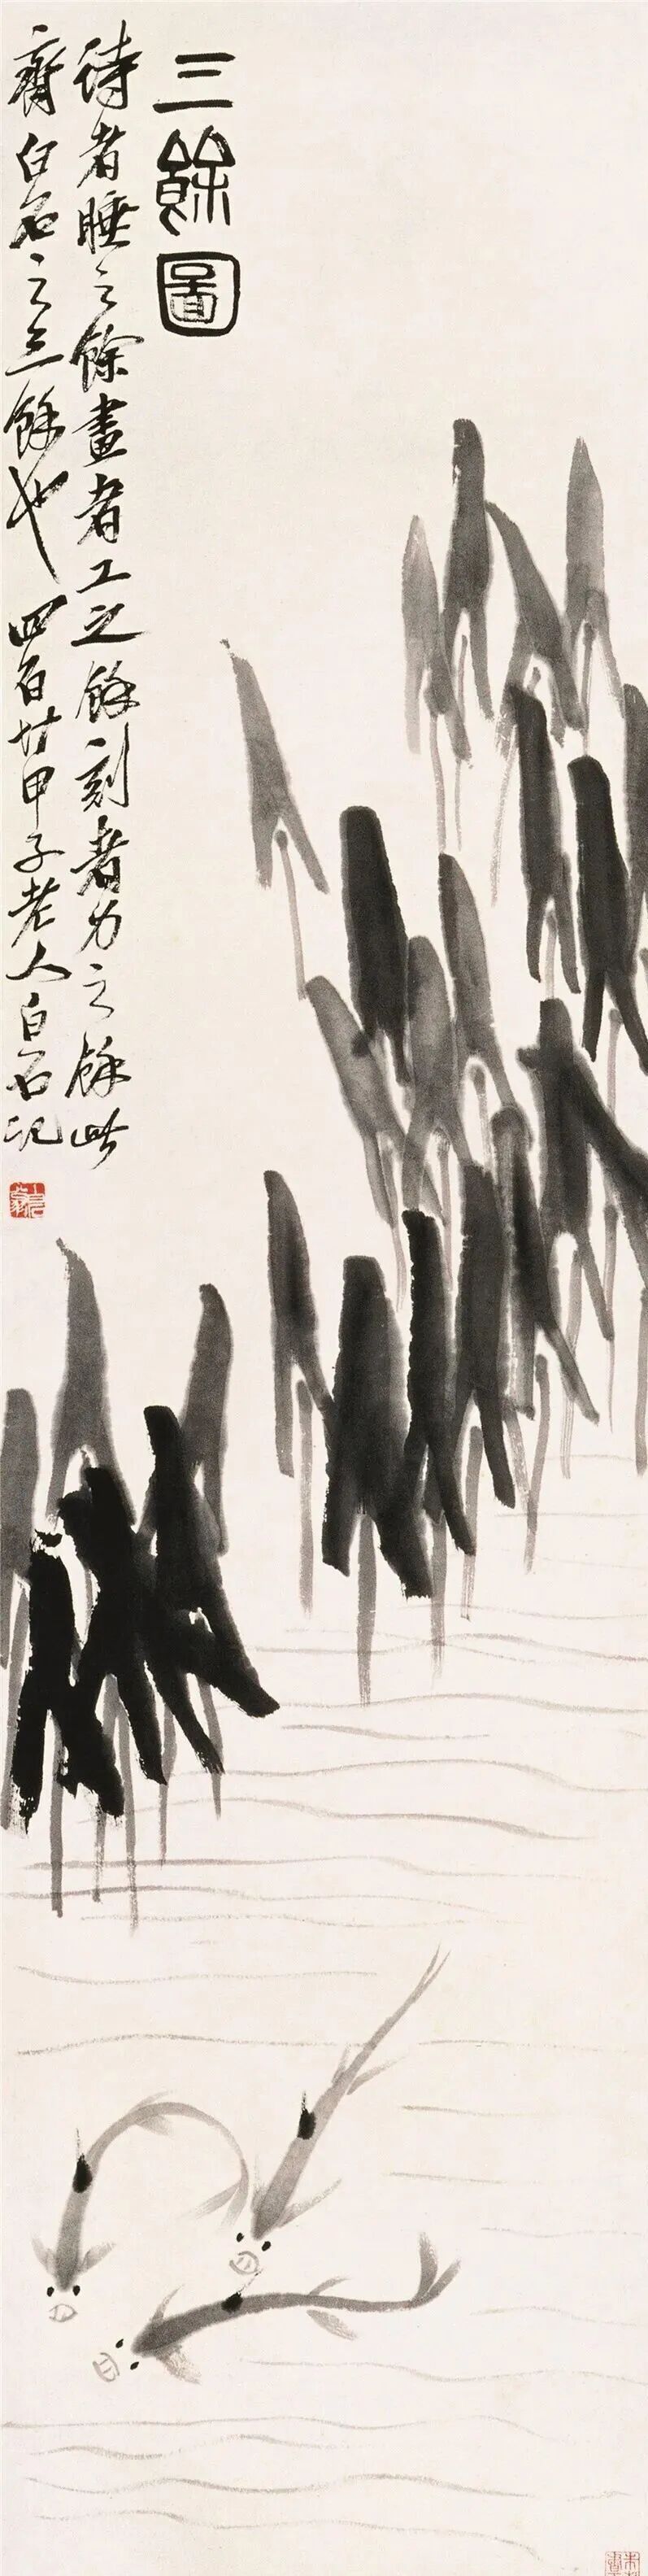 三餘圖
詩者睡之餘畫者工之餘刻者力之餘此
齊白石之三餘也 四百廿甲子老人白石記
白石翁